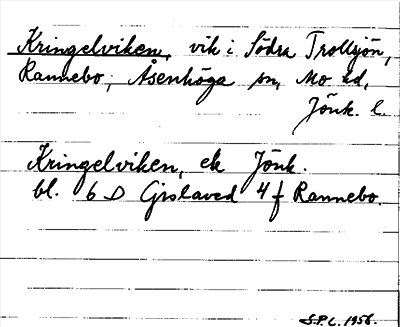 Kringelviken, vik i Södra Trollsjön,
Rannebo, Åsenhöga sn, Mo hd,
Jönk. l.
Kringelviken, ek Jönk.
bl. 6 D Gislaved 4 f Rannebo.
S.P.L. 1956.